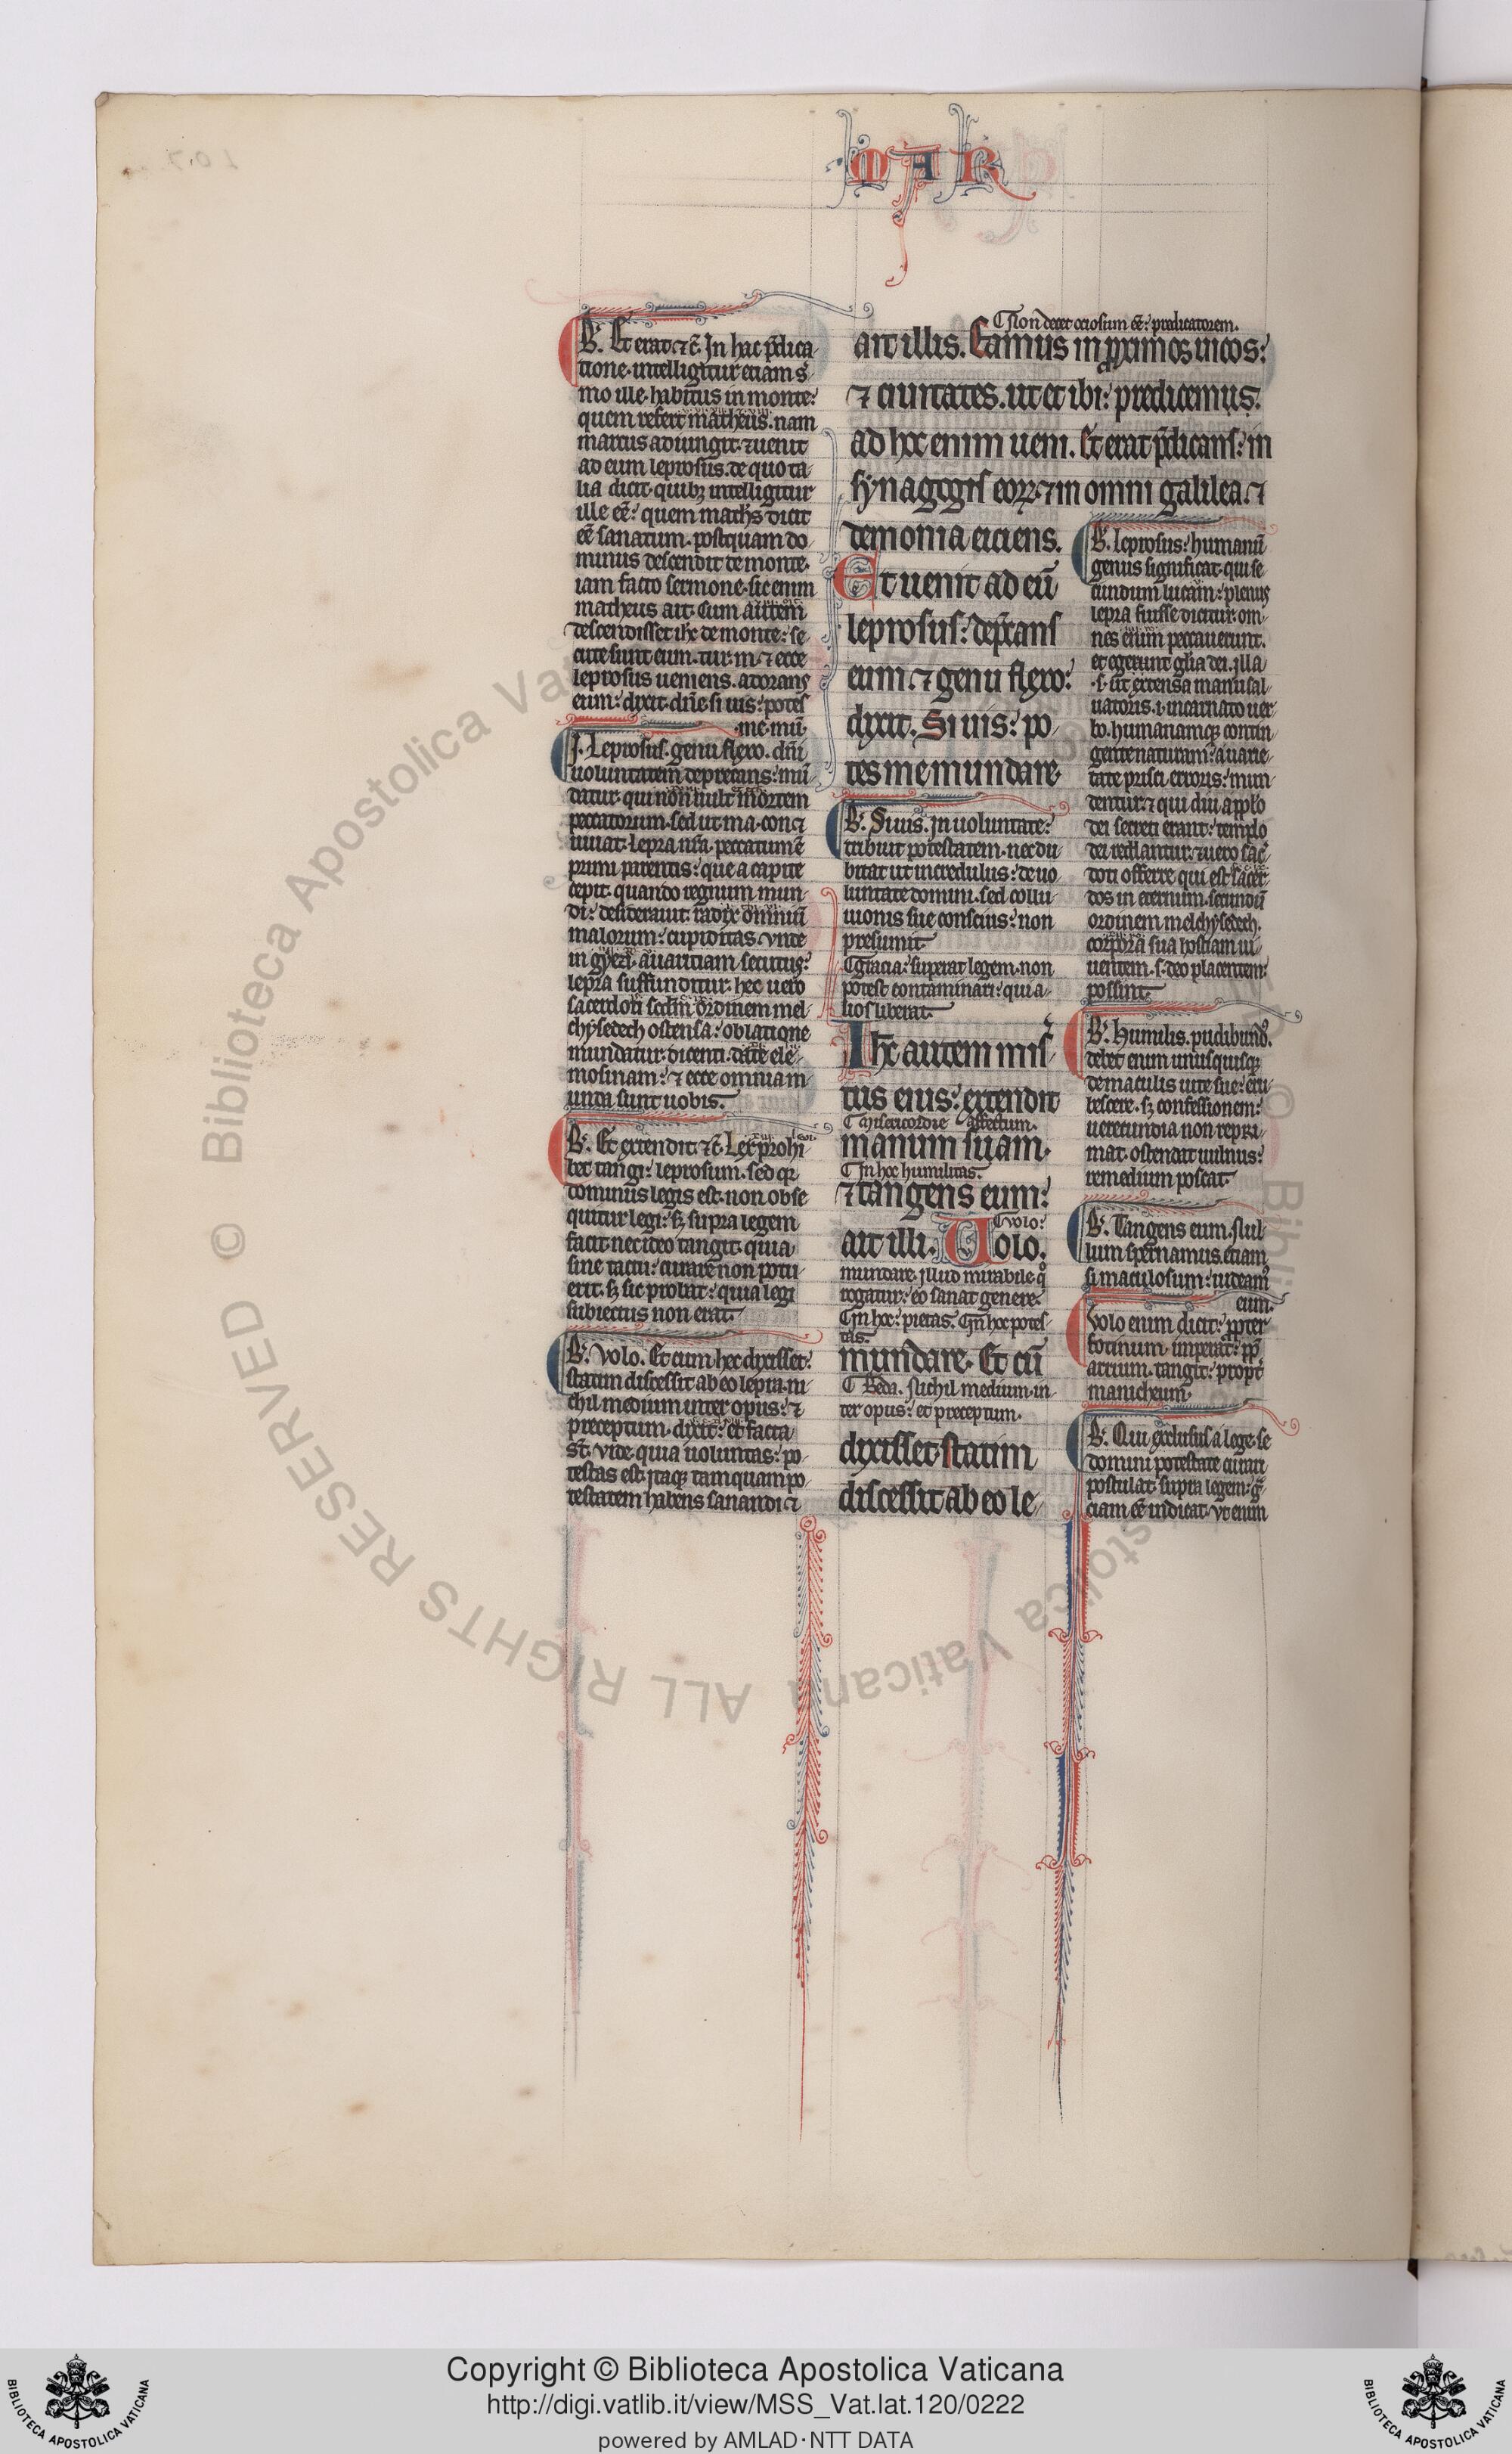 MAR
B. Et erat ⁊ c̄. In hac p̄dica-
tione. intelligitur etiam s̓-
mo ille. habitus in monte:
quem refert matheus. nam
marcus adiungit. ⁊ uenit
ad eum leprosus. de quo ta-
lia dicit. quibꝫ intelligitur
ille eē: quem math̓s dicit
eē sanatum. postquam do-
minus descendit de monte.
iam facto sermone. sic enim
matheus ait. Cum autem
descendisset ih̄c de monte: se-
cute sunt eum. tur. m. ⁊ ecce
leprosus ueniens. adorans
eum: dyxit. dn̄e si uis: potes
me. mū.
J. Leprosus. genu flexo. dn̄i
uoluntatem deprecans: mū-
datur. qui non uult mortem
peccatorum. sed ut ma. con. ⁊
uiuat. lepra nr̄a. peccatum ē
primi parentis: que a capite
cepit. quando regnum mun-
di: desiderauit. radix omniū
malorum: cupiditas. vnde
in gyezi. auaritiam secutus:
lepra suffunditur. hec uero
sacerdoti scd̄m ordinem mel-
chysedech ostensa: oblatione
mundatur. dicenti. date ele-
mosinam: ⁊ ecce omnia m-
unda sunt uobis.
B. Et extendit ⁊ c̄. Lex prohi-
bet tangi: leprosum. sed qr
dominus legis est. non obse-
quitur legi: sꝫ supra legem
facit. nec ideo tangit. quia
sine tactu: curare non potu-
erit. sꝫ sic probat: quia legi
subiectus non erat.
B. Volo. Et cum hec dyxisset:
statim discessit ab eo lepra. ni-
chil medium inter opus: ⁊
preceptum. dyxit: et facta
st̄. vide quia uoluntas: po-
testas est. itaqꝫ tamquam po-
testatem habens sanandi ⁊
Non decet ociosum eē: predicatorem.
ait illis. Eamus in p̱ximos uicos:
⁊ ciuitates. ut et ibi: predicemus.
ad hoc enim ueni. Et erat p̄dicans: in
synagogis eoꝝ. ⁊ in omni galilea. ⁊
demonia eiciens.
Et uenit ad eū
leprosus: dep̄cans
eum. ⁊ genu flexo:
dyxit. Si uis: po-
tes me mundare.
B. Si uis. In uoluntate:
tribuit potestatem. nec du-
bitat ut incredulus: de uo-
luntate domini. sed collu-
uionis sue conscius: non
presumit.
Gracia: superat legem. non
potest contaminari: qui a-
lios liberat.
Ih̄c autem mis̓-
tus eius: extendit
Misericordie affectum.
manum suam.
In hoc humilitas.
⁊ tangens eum:
Volo:
ait illi. Uolo.
mundare. illud mirabile q̊
rogatur: eo sanat genere.
In hoc: pietas. In hoc potes-
tas.
mundare. Et cū
Beda. Nichil medium in-
ter opus: et preceptum.
dyxisset. statim
discessit ab eo le-
B. leprosus: humanū
genus significat. qui se-
cundum lucam: plenus
lepra fuisse dicitur. om-
nes enim peccauerunt.
et egerunt gl̄ia dei. illa
.s. ut extensa manu sal-
uatoris. i. incarnato uer-
bo. humanamqꝫ contin-
gente naturam: a uarie-
tate prisci erroris: mun-
dentur. ⁊ qui diu a pplo
dei secreti erant: templo
dei reddantur. ⁊ uero sac̓-
doti offerre qui est sacer-
dos in eternum. secundū
ordinem melchysedech.
corpora sua hostiam ui-
uentem. s. deo placentem:
possint.
B. Humilis. pudibundꝰ.
debet enim unusquisqꝫ
de maculis uite sue: eru-
bescere. sꝫ confessionem:
uerecundia non repri-
mat. ostendat uulnus:
remedium poscat.
B. Tangens eum. Nul-
lum spernamus. etiam
si maculosum: uideamꝰ
eum.
Volo enim dicit: ppter
fotinum. imperat: pp̄
arrium. tangit: propt̓
manicheum.
B. Qui exclusus a lege. se
domini potestate curari
postulat. supra legem: gr̄-
ciam eē indicat. Vt enim
Copyright © Biblioteca Apostolica Vaticana
http://digi.vatlib.it/view/MSS_Vat.lat.120/0222
powered by AMLAD·NTT DATA
BIBLIOTECA APOSTOLICA VATICANA
BIBLIOTECA APOSTOLICA VATICANA